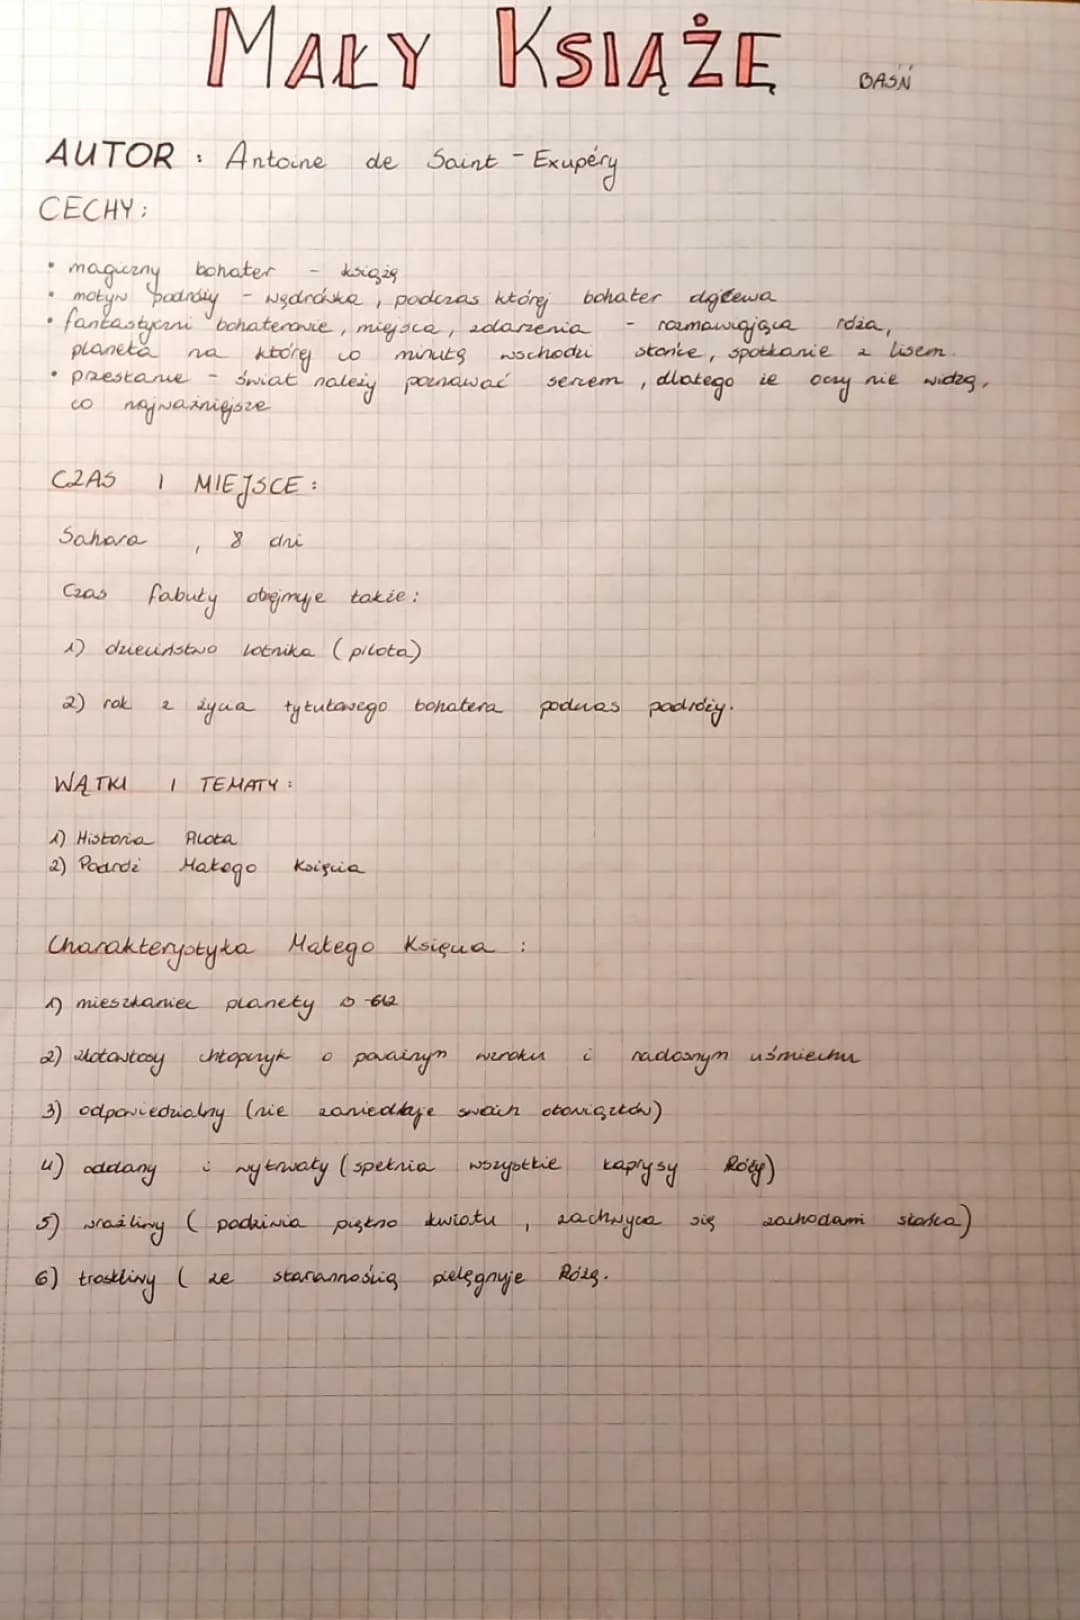 MAŁY KSIĄŻĘ BAŚŃ
AUTOR : Antoine de Saint - Exupéry
CECHY :
• magiczny bohater - książę
• motyw podróży - wędrówka, podczas której bohater dojrzewa
• fantastyczni bohaterowie, miejsca, zdarzenia - rozmawiająca róża,
planeta na której co minutę wschodzi słońce, spotkanie z lisem.
• przesłanie - świat należy poznawać sercem, dlatego że oczy nie widzą,
co najważniejsze
CZAS I MIEJSCE :
Sahara , 8 dni
Czas fabuły obejmuje także :
1) dzieciństwo lotnika (pilota)
2) rok z życia tytułowego bohatera podczas podróży.
WĄTKI I TEMATY :
1) Historia Pilota
2) Podróż Małego Księcia
Charakterystyka Małego Księcia :
1) mieszkaniec planety B-612
2) złotowłosy chłopczyk o poważnym wzroku i radosnym uśmiechu
3) odpowiedzialny (nie zaniedbuje swoich obowiązków)
4) oddany i wytrwały (spełnia wszystkie kaprysy Róży)
5) wrażliwy ( podziwia piękno kwiatu , zachwyca się zachodami słońca)
6) troskliwy ( ze starannością pielęgnuje Różę.